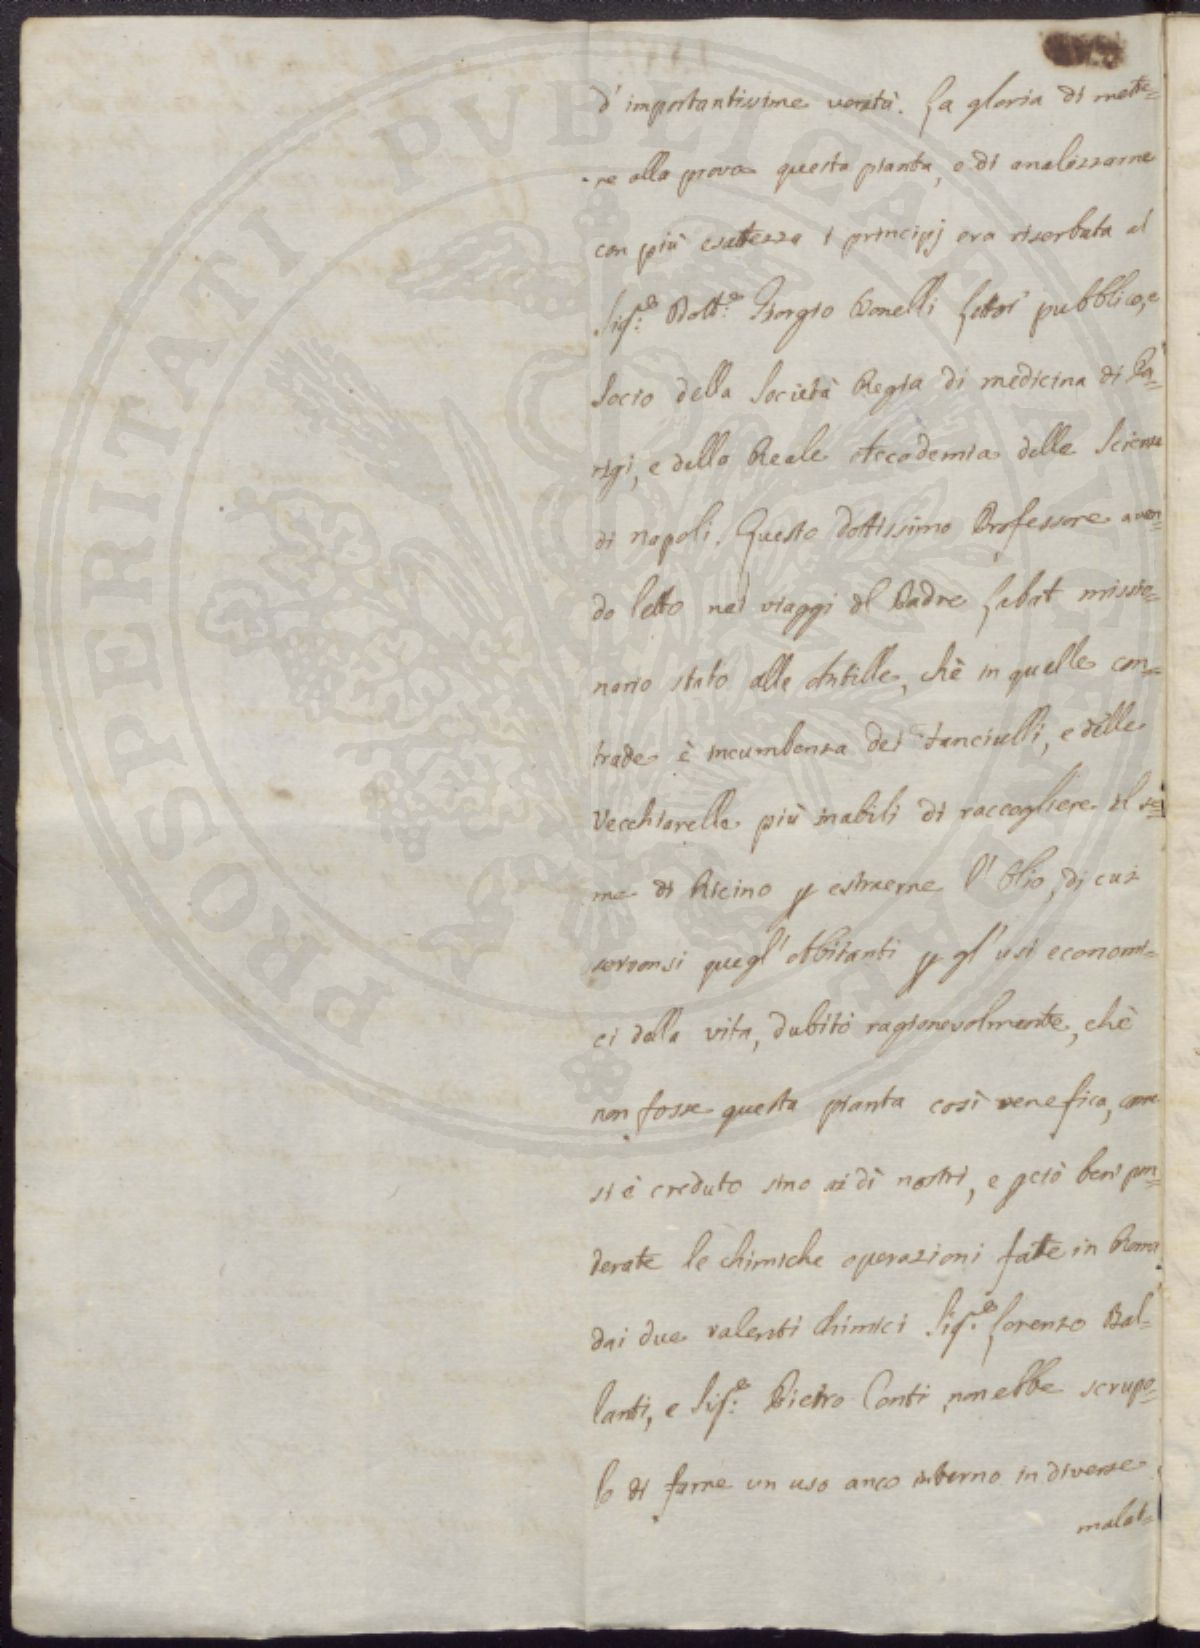 d'importantissime verità. La gloria di mette=
=re alla prova questa pianta, e di analizzarne
con più esattezza i principj era riserbata al
Sig.e Dott.e Giorgio Bonelli Lettor pubblico, e
Socio della Società Regia di medicina di Pa=
rigi, e della Reale Accademia delle Scienze
di Napoli. Questo dottissimo Professore aven=
do letto nei viaggi del Padre Labat missio=
nario stato alle Antille, chè in quelle con=
trade è incumbenza dei fanciulli, e delle
Vecchiarelle più inabili di raccogliere il se=
me di Ricino p estraerne l'Olio, di cui
servonsi quegl'Abitanti p gl'usi economi=
ci della vita, dubitò ragionevolmente, chè
non fosse questa pianta così venefica, come
si è creduto sino ai dì nostri, e pciò ben pon=
derate le chimiche operazioni fatte in Roma
dai due valenti chimici Sig.e Lorenzo Bal=
lanti, e Sig.e Pietro Conti, non ebbe scrupo=
lo di farne un uso anco interno in diverse
malat=
PROSPERITATI PUBLICAE AUGENDAE